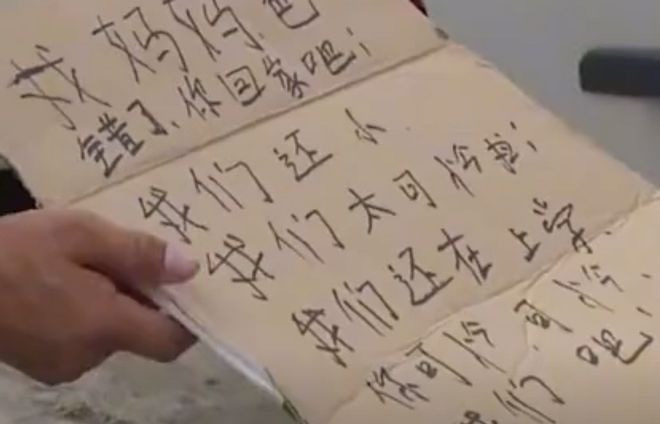 找妈妈.爸
错了、你回家吧；
我们还小.
我们太可怜
我们还在上学.
你可怜可怜.
我们吧；